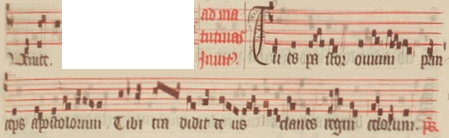 Venite. ad ma
tutinas
Invit. Tu es pastor ovium prin
ceps apostolorum Tibi tra didit de us claves regni celorum. ps.